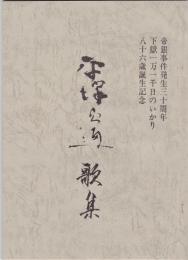 帝銀事件発生三十周年
下獄一万一千日のいかり
八十六歳誕生記念
平澤貞通
歌集